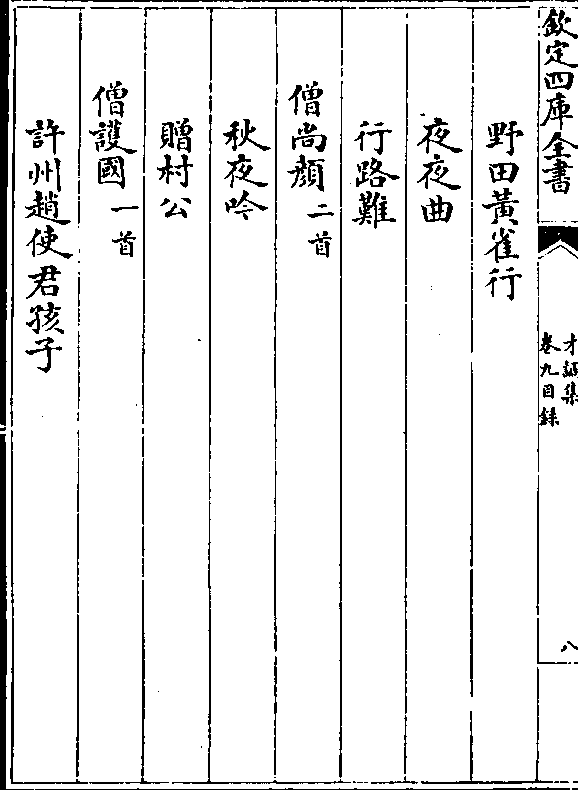 欽定四庫全書
才調集
卷九目錄
八
野田黃雀行
夜夜曲
行路難
僧尚顏二首
秋夜吟
贈村公
僧護國一首
許州趙使君孩子